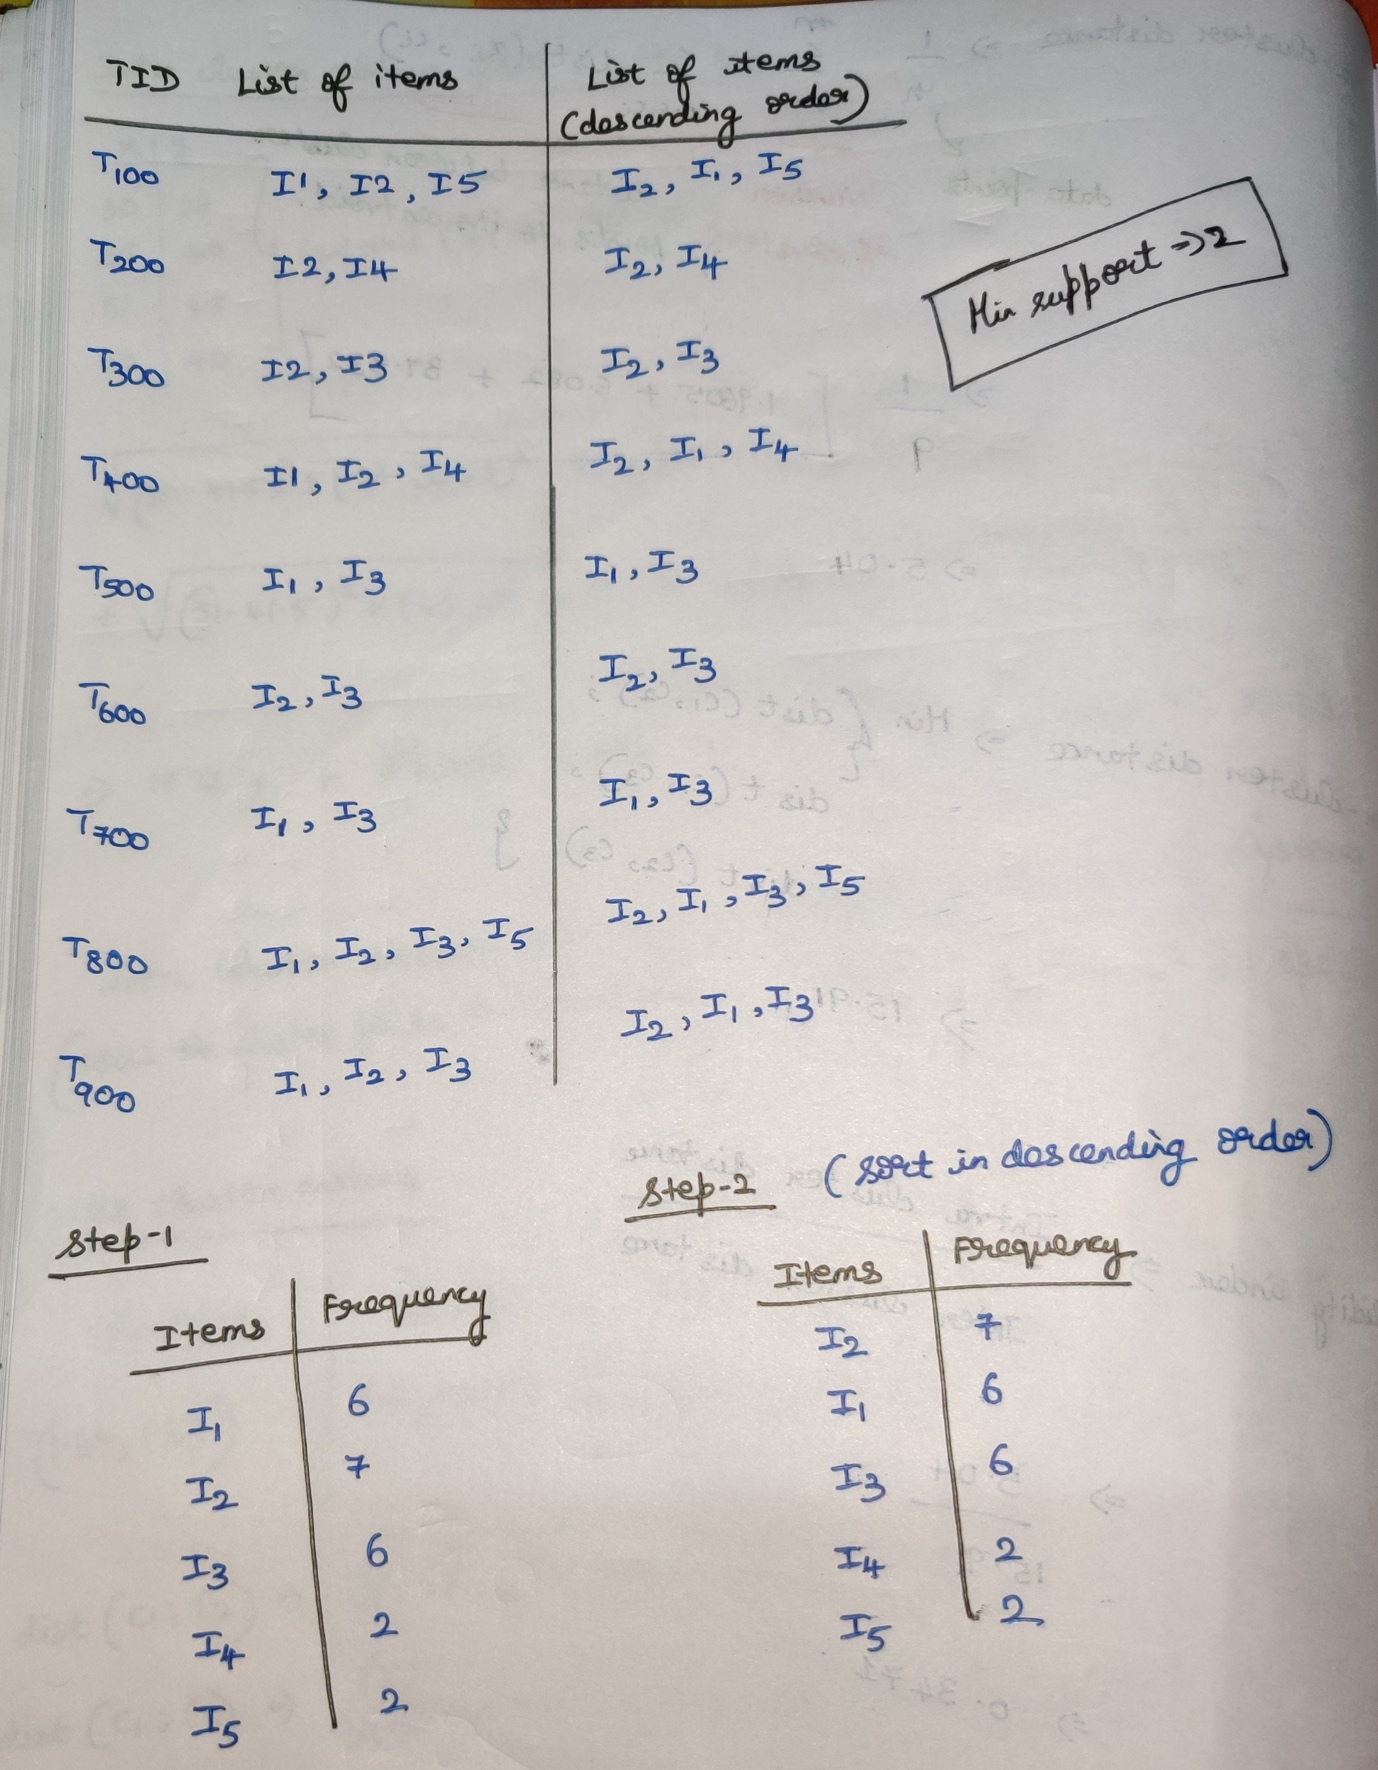 TID List of items List of items
(descending order)
T100 I1, I2, I5 I2, I1, I5
T200 I2, I4 I2, I4
Min support => 2
T300 I2, I3 I2, I3
T400 I1, I2, I4 I2, I1, I4
T500 I1, I3 I1, I3
T600 I2, I3 I2, I3
T700 I1, I3 I1, I3
T800 I1, I2, I3, I5 I2, I1, I3, I5
T900 I1, I2, I3 I2, I1, I3
Step-1
Items Frequency
I1 6
I2 7
I3 6
I4 2
I5 2
Step-2 (sort in descending order)
Items Frequency
I2 7
I1 6
I3 6
I4 2
I5 2